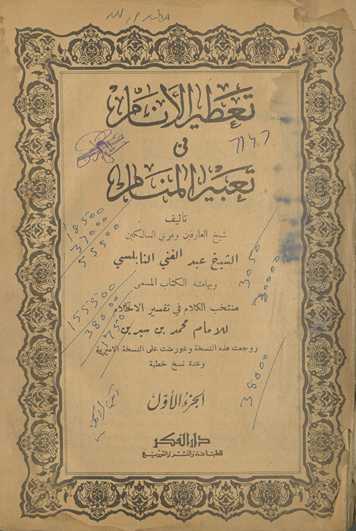 تعطير الأنام
في
تعبير المنام
تأليف
شيخ العارفين ومربي السالكين
الشيخ عبد الغني النابلسي
وبهامشه الكتاب المسمى
منتخب الكلام في تفسير الاحلام
للامام محمد بن سيرين
روجعت هذه النسخة وعورضت على النسخة الاميرية
وعدة نسخ خطية
الجزء الأول
دار الفكر
للطباعة والنشر والتوزيع
18500
37000
55500
155500
38000
3050
30000
38000